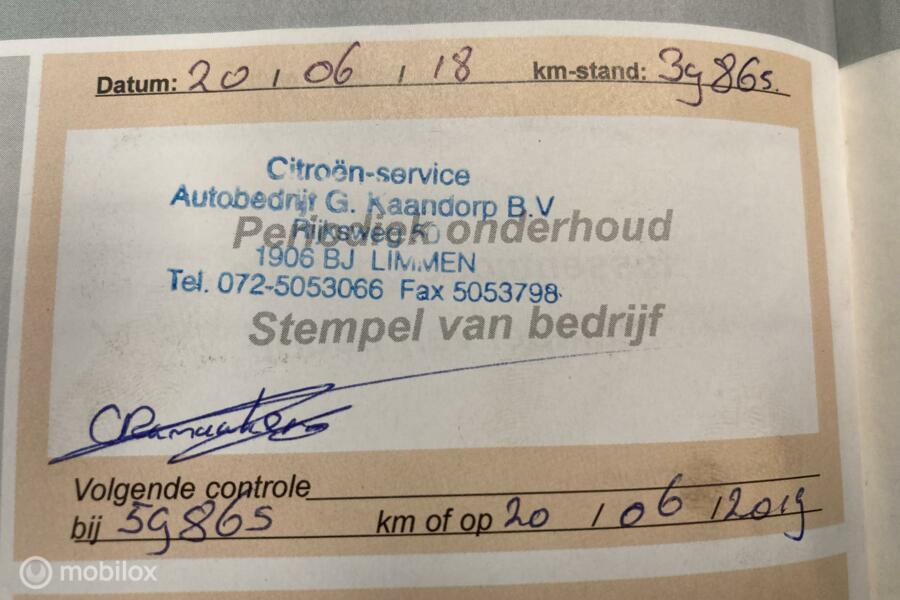 Datum: 20 / 06 / 18 km-stand: 39865.
Citroën-service
Autobedrijf G. Kaandorp B.V
Rijksweg 50
Periodiek onderhoud
1906 BJ LIMMEN
Tel. 072-5053066 Fax 5053798
Stempel van bedrijf
Volgende controle
bij 59865 km of op 20 / 06 / 2019
mobilox